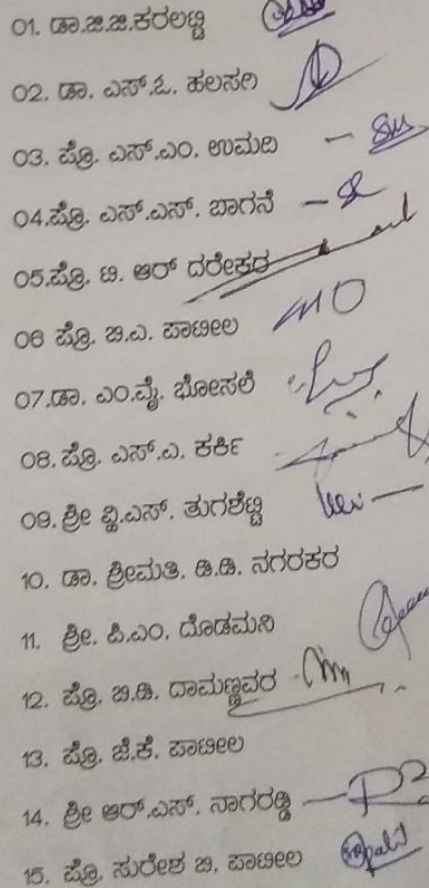 01. ಡಾ.ಜಿ.ಜಿ.ಕರಲಟ್ಟಿ
02. ಡಾ. ಎಸ್.ಓ. ಹಲಸಗಿ
03. ಪ್ರೊ. ಎಸ್.ಎಂ. ಉಮದಿ
04.ಪ್ರೊ. ಎಸ್.ಎಸ್. ಬಾಗನೆ
05.ಪ್ರೊ. ಟಿ. ಆರ್ ದರೇಕರ
06 ಪ್ರೊ. ಬಿ.ಎ. ಪಾಟೀಲ
07.ಡಾ. ಎಂ.ವೈ. ಭೋಸಲೆ
08. ಪ್ರೊ. ಎಸ್.ಎ. ಕರ್ಕಿ
09. ಶ್ರೀ ವ್ಹಿ.ಎಸ್. ತುಗಶೆಟ್ಟಿ
10. ಡಾ. ಶ್ರೀಮತಿ. ಡಿ.ಡಿ. ನಗರಕರ
11. ಶ್ರೀ. ಪಿ.ಎಂ. ದೊಡಮನಿ
12. ಪ್ರೊ. ಬಿ.ಡಿ. ದಾಮಣ್ಣವರ
13. ಪ್ರೊ. ಜೆ.ಕೆ. ಪಾಟೀಲ
14. ಶ್ರೀ ಆರ್.ಎಸ್. ನಾಗರಡ್ಡಿ
15. ಪ್ರೊ. ಸುರೇಶ ಬಿ. ಪಾಟೀಲ